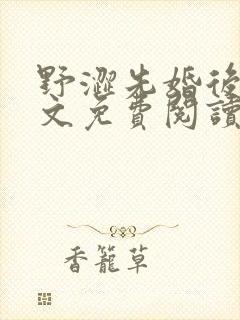 野澀先婚後
文免費閱讀
香籠草